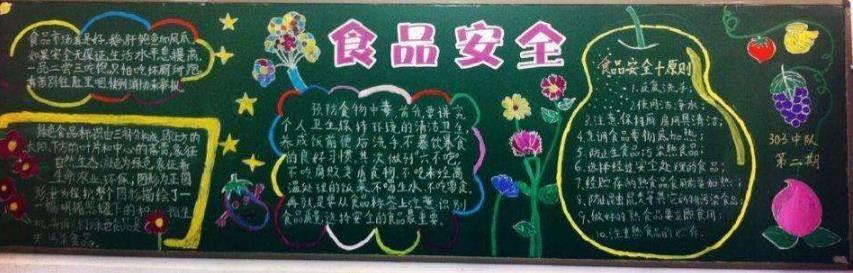 食品安全
食品市场真是好,鹅肝鲍鱼加凤爪
如果安全无保证,生活水平恁提高,
绿色食品标识由三部分构成,即上方的
太阳、下方的叶片和中心的蓓蕾,象征
自然生态;颜色为绿色,象征着
生命、农业、环保;图形为正圆
形,意为保护。整个图形描绘了一
预防食物中毒,首先要讲究
个人卫生,保持环境的清洁卫生,
养成饭前便后洗手、不暴饮暴食
的良好习惯,其次做到"六不吃",
不吃腐败变质食物,不吃未经高
温处理的饭菜,不喝生水,不吃零食,
再就是要从食品标签上注意识别
食品质量,选择安全的食品最重要。
食品安全十原则
1.反复洗手;
2.使用洁净水;
3.注意保持厨房用具清洁;
4.烹调食品要彻底加热;
5.防止生食品污染熟食品;
6.选择经过安全处理的食品;
7.经贮存的熟食品食前要加热;
8.防止昆虫鼠类其它动物污染食品;
9.做好的熟食品要立即食用;
10.注意熟食品的贮存.
303中队
第二期